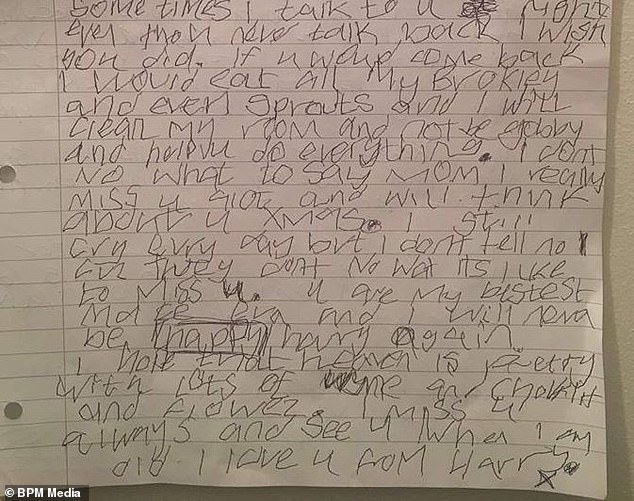 Some times I talk to u at night
even thou u never talk back I wish
you did. If u wud come back
I would eat all my Brokley
and even sprouts and I will
clean my room and not be gobby
and help u do everything. I dont
no what to say mom I really
miss u alot and will think
about u xmas. I still
cry evry day but I dont tell no 1
coz they dont no wat its like
to miss u. u are my bestest
mate eva and I will neva
be happy harry again
I hope that heaven is pretty
with lots of wine an choklit
and flowez. I miss u
always and see u when I am
did I love u from Harry x
© BPM Media